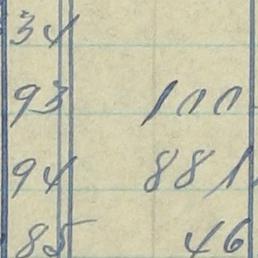 34
93 100
94 881
85 46